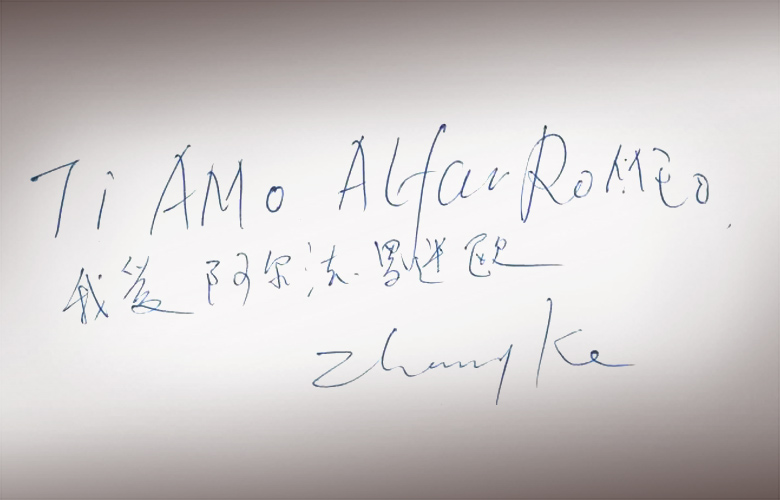 Ti AMo Alfa Romeo
我爱 阿尔法·罗密欧
Zhang Ke